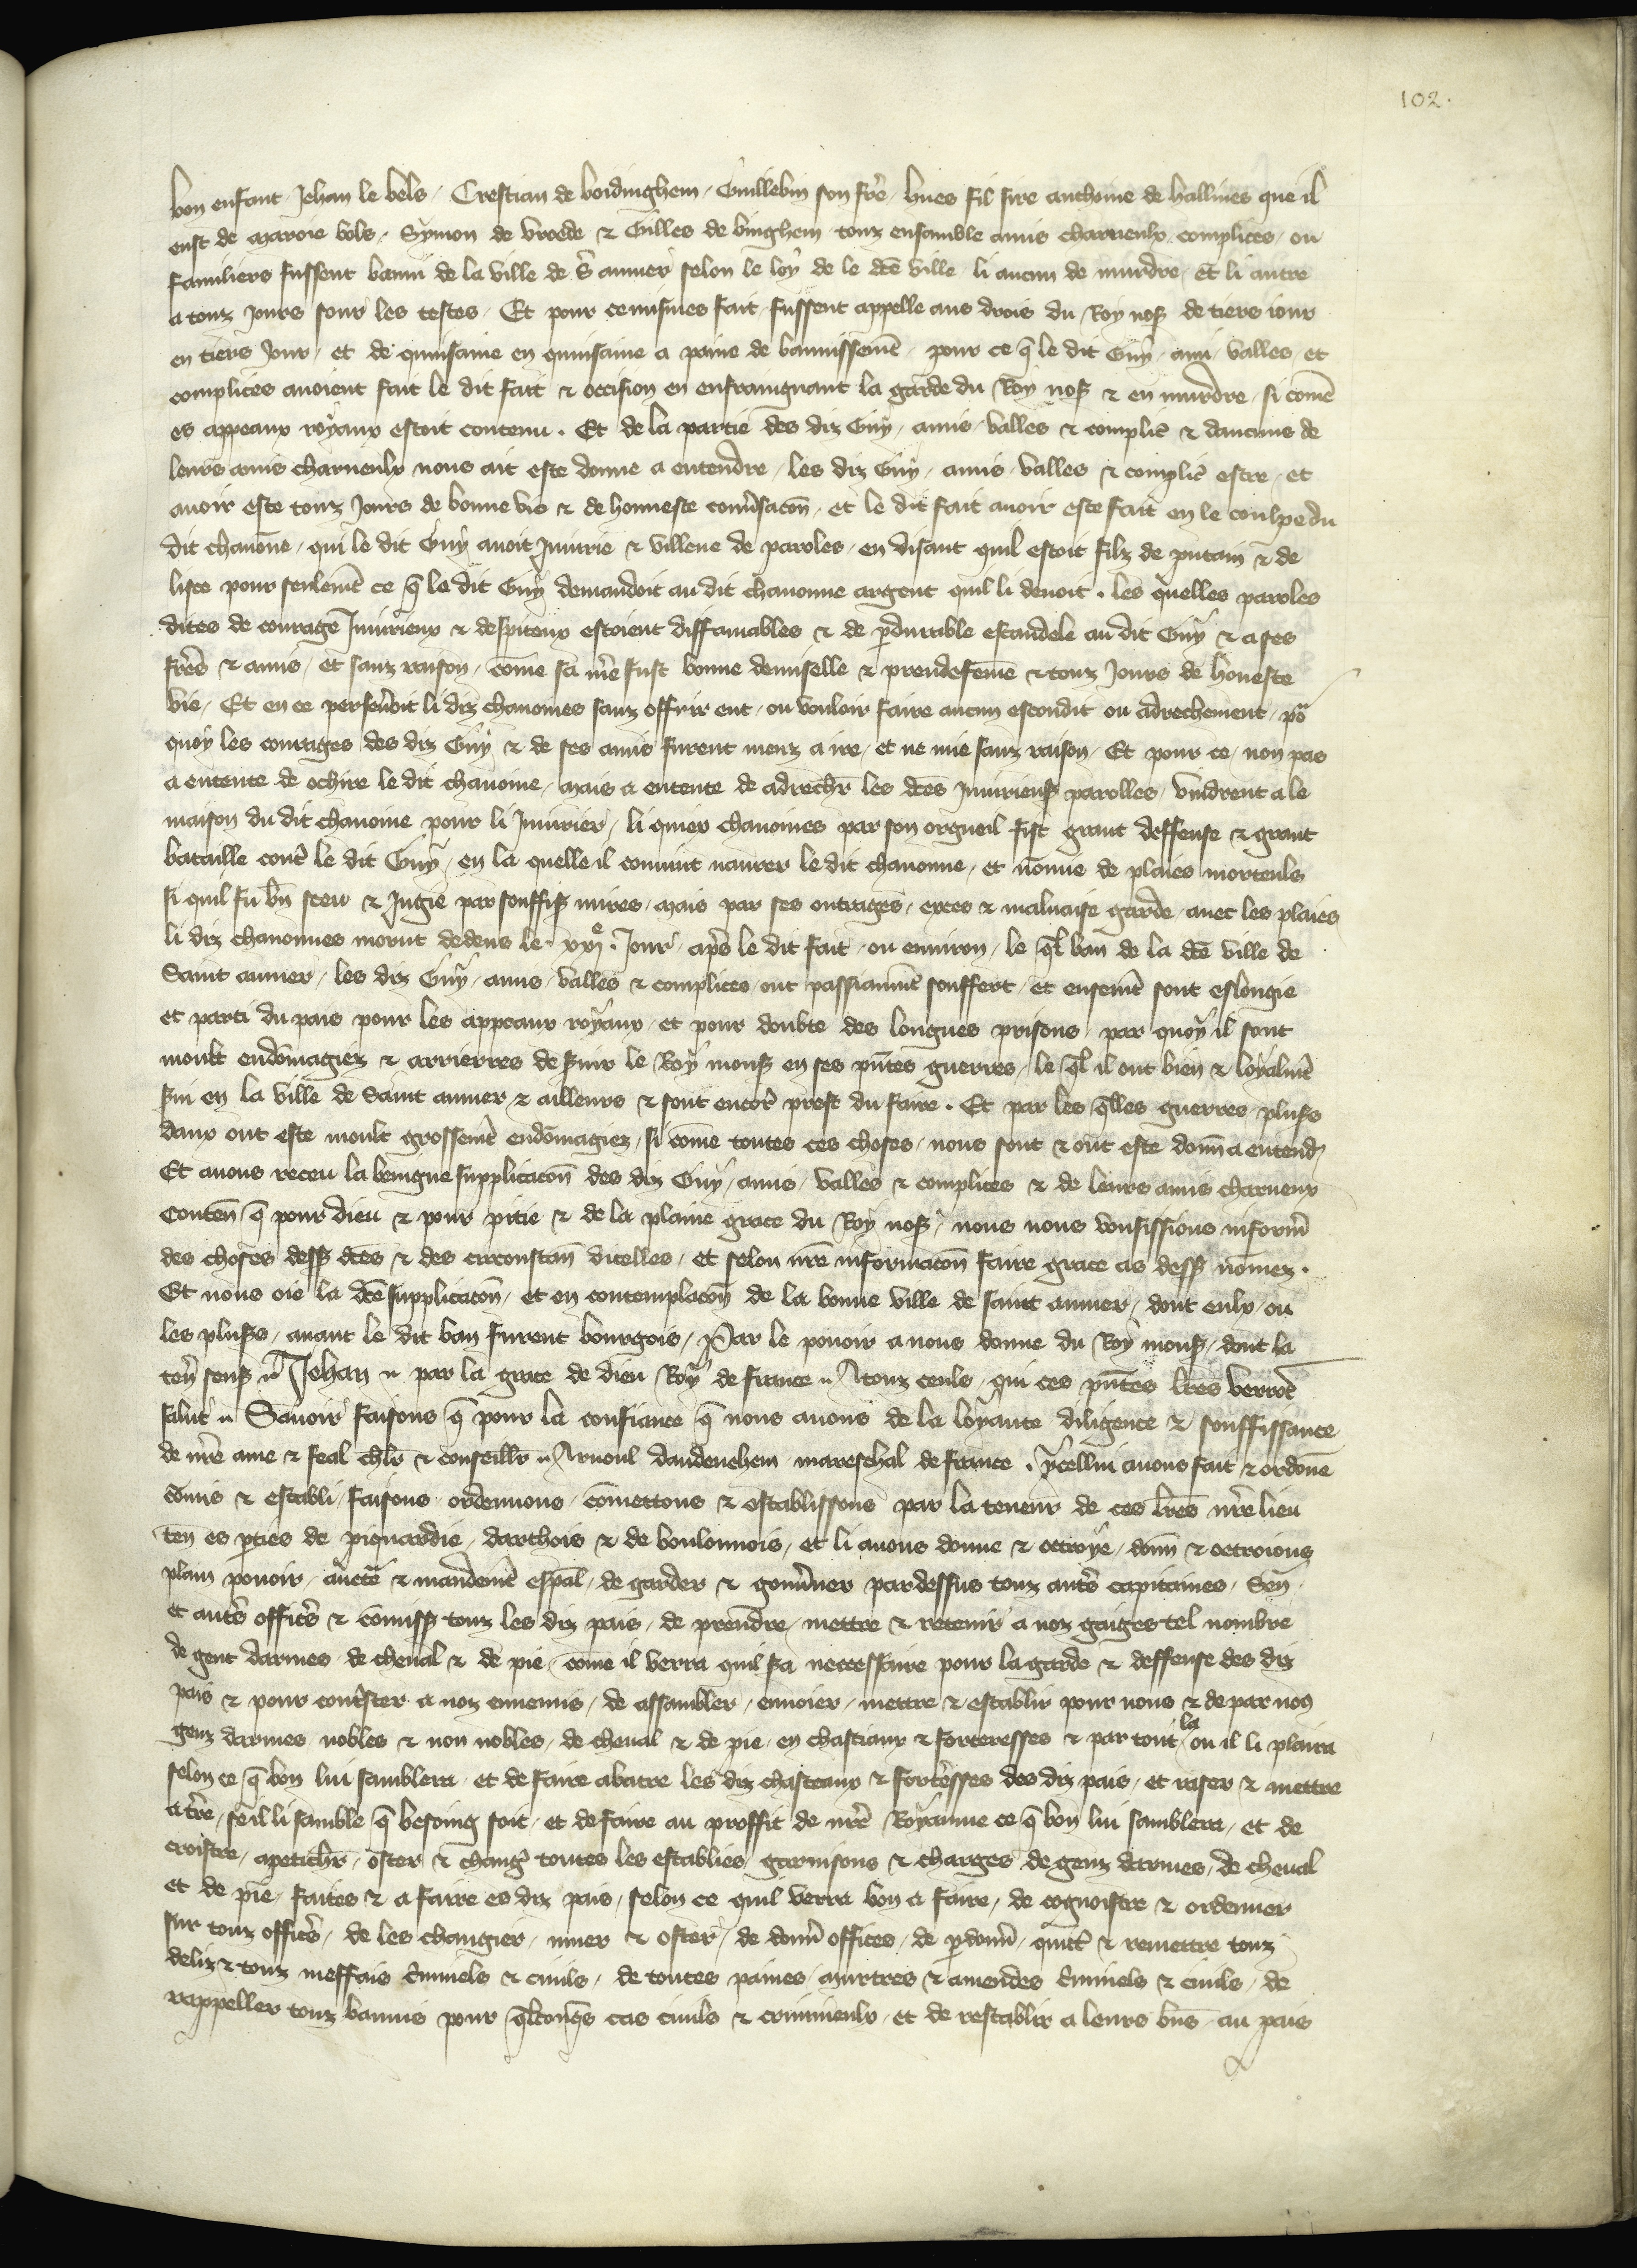 102.
bon enfant Jehan le bels / Crestian de boidinghem / Guillebin son frē / hues fil sire anthoine de hallines que il
eust de maroie bols / Symon de vroede & Gilles de binghem touz ensamble amis charneulx complices / ou
familiers fussent banni de la ville de S̄ aumer selon le loy de le dc̄e ville li aucun de murdre / et li autre
a touz Jours sour les testes / Et pour ce mismes fait fussent appelle aus drois du Roy noss̄ de tiers iour
en tiers Jour / et de quinsaine en quinsaine a paine de bannissemēt / pour ce q̄ le dit Guy / ami / valles et
complices auoient fait le dit fait & occision en enfraingnant la garde du Roy noss̄ & en murdre / si comē
es appeaux royaux estoit contenu . Et de la partie des diz Guy / amis / valles & complic̄ & daucuns de
leurs amis charneulx nous ait este donne a entendre / les diz Guy / amis / valles & complic̄ estre / et
auoir este touz Jours de bonne vie & de honneste conūsacōn / et le dit fait auoir este fait en le coulpe du
dit chanone / qui le dit Guy auoit Jniurie & villene de paroles / en disant quil estoit filz de putain & de
lisce pour seulemēt ce q̄ le dit Guy demandoit au dit chanonne argent quil li deuoit . les quelles paroles
dites de courage Jniurieux & despiteux estoient diffamables & de p̄durable escandele au dit Guy & a ses
frēs & amis / et sanz raison / cōme sa mēre fust bonne demiselle & preudefemē & touz Jours de honeste
vie / Et en ce perseūoit li diz chanoines sanz offrir ent / ou vouloir faire aucun escondit ou adrechement / po᷑
quoy les courages des diz Guy & de ses amis furent meuz a ire / et ne mie sanz raison / Et pour ce / non pas
a entente de ochire le dit chanoine / mais a entente de adrechr̄ les dc̄es Jniurieuss̄ parolles / vindrent a le
maison du dit chanoine pour li Jniurier / li quier chanoines par son orgueil fist grant deffense & grant
bataille contr̄ le dit Guy / en la quelle il conuint naurer le dit chanonne / et nōnne de plaies morteuls
si quil fu bn̄ sceu & Jugie par souffiss̄ mires / mais par ses outrages / exces & maluaise garde / auec les plaies
li diz chanonnes morut dedens le . xxjᵉ . Jour / ap̄s le dit fait / ou enuiron / le q̄l ban de la dc̄e ville de
Saint aumer / les diz Guy / amis / valles & complices ont passiaumēt souffert / et ensemēt sont eslongie
et parti du pais pour les appeaux royaux / et pour doubte des longues prisons / par quoy il sont
moult endōmagiez & arrierres de s̄uir le Roy monss̄ en ses pn̄tes guerres / le q̄l il ont bien & loyalmēt
s̄ui en la ville de Saint aumer & ailleurs & sont encor̄ prest du faire . Et par les q̄lles guerres pluss̄s
daux ont este moult grossemēt endōmagiez / si cōme toutes ces choses / nous sont & ont este donn̄ a entend᷑
Et auons receu la benigne supplicacōn des diz Guy / amis / valles & complices & de leurs amis charneux
Conten̄ q̄ pour dieu & pour pitie & de la plaine grace du Roy noss̄ / nous nous vousissions inform̄
des choses dess̄ dc̄es & des circonstan̄ dicelles / et selon nrē informacōn faire grace as dess̄ nōmez .
Et nous oie la dc̄e supplicacōn / et en contemplacōn de la bonne ville de saint aumer / dont eulx / ou
les pluss̄s / auant le dit ban furent bourgois / Par le pouoir a nous donne du Roy monss̄ / dont la
ten᷑ sens᷑ „ Jehan „ par la grace de dieu Roy de france „ A touz ceuls / qui ces pn̄tes lrēs verrōt
salut „ Sauoir faisons q̄ pour la confiance q̄ nous auons de la loyaute diligence & souffissance
de nrē ame & feal chlr̄ & conseillr̄ „ Arnoul daudenehem mareschal de france . ycellui auons fait & ordonē
cōmis & establi / faisons / ordennons / cōmettons & establissons par la teneur de ces lrēs nrē lieu
ten̄ es pties de piquardie / darthois & de boulonnois / et li auons donne & octroye / donn̄ & octroions
plain pouoir / auctē & mandemēt esp̄al / de garder & gouūner pardessus touz autr̄s capitaines / Sen̄
et autr̄s officr̄s & cōmiss̄ touz les diz pais / de prendre / mettre & retenir a noz gaiges tel nombre
de gent darmes de cheual & de pie / cōme il verra quil s̄a necessaire pour la garde & deffense des diz
pais & pour contr̄ster a noz ennemis / de assambler / enuoier / mettre & establir pour nous & de par nous
genz darmes nobles & non nobles / de cheual & de pie / en chastiaux & forteresses & par tout la ou il li plaira
selon ce q̄ bon lui samblera / et de faire abatre les diz chasteaux & fortr̄esses des diz pais / et raser & mettre
a tr̄e / se il li samble q̄ besoing soit / et de faire au proffit de nrē Royaume ce q̄ bon lui samblera / et de
croistre / apetichr̄ / oster & chang᷑ toutes les establies / garnisons & charges de genz darmes / de cheual
et de pie / faites & a faire es diz pais / selon ce quil verra bon a faire / de cognoistre & ordenner
sur touz officr̄s / de les changier / muer & oster / de donn̄ offices / de p̄donn̄ / quitt̄ & remettre touz
deliz & touz meffais c̄minels & ciuils / de toutes paines / murtres & amendes c̄minels & ciuils / de
rappeller touz bannis pour q̄lconq̄s cas ciuils & crimineulx / et de restablir a leurs bn̄s au pais